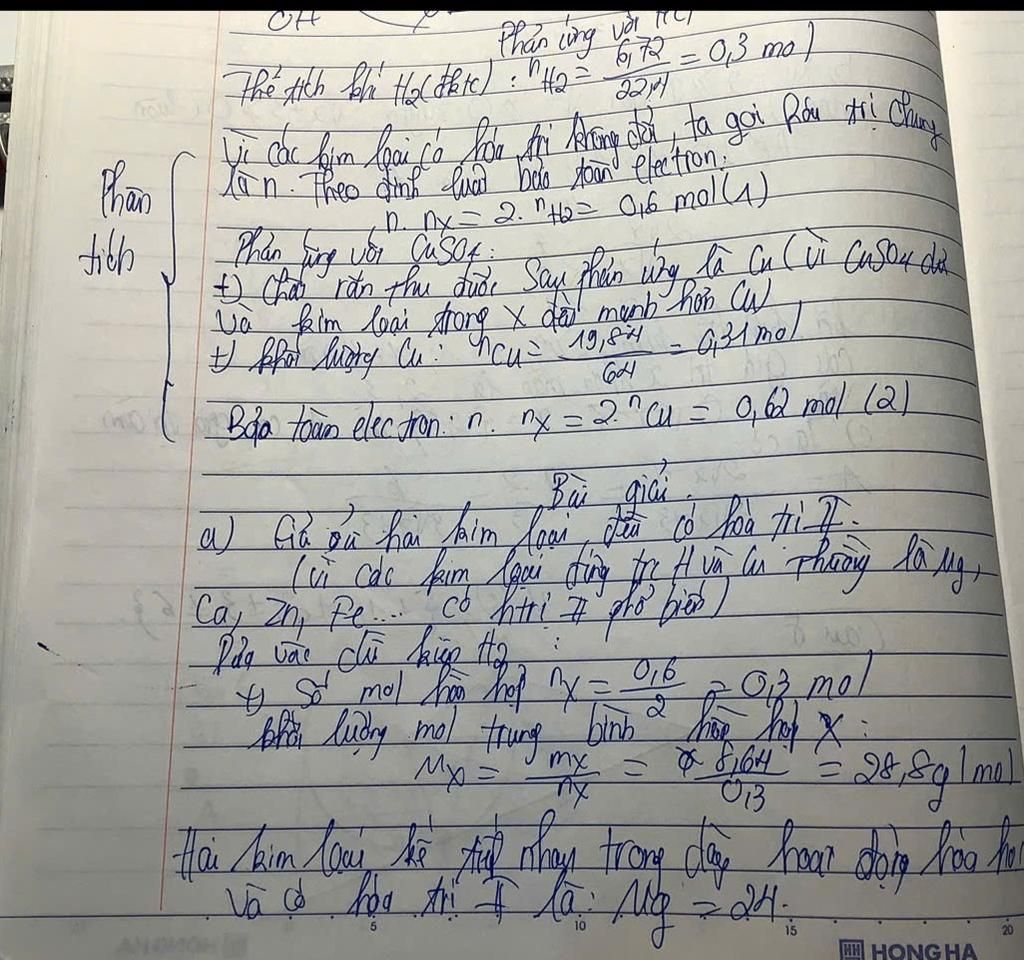 OH
Phản ứng với HCl
Thể tích khí H₂(đktc): nH₂ = 6,72/22,4 = 0,3 mol
Phân tích
Vì các kim loại có hóa trị không đổi, ta gọi hóa trị chung
là n. Theo định luật bảo toàn electron:
n. nX = 2. nH₂ = 0,6 mol (1)
Phản ứng với CuSO₄:
+) Chất rắn thu được sau phản ứng là Cu (vì CuSO₄ dư
và kim loại trong X đều mạnh hơn Cu)
+) khối lượng Cu: nCu = 19,84/64 = 0,31 mol
Bảo toàn electron: n. nX = 2. nCu = 0,62 mol (2)
Bài giải.
a) Giả sử hai kim loại đều có hóa trị II.
(vì các kim loại đứng trc H và Cu thường là Mg,
Ca, Zn, Fe.... có htrị II phổ biến)
Dựa vào dữ kiện H₂:
+) Số mol hỗn hợp nX = 0,6/2 = 0,3 mol
khối lượng mol trung bình hỗn hợp X:
MX = mX/nX = 8,64/0,3 = 28,8g/mol
Hai kim loại kế tiếp nhau trong dãy hoạt động hóa họ
và có hóa trị II là: Mg = 24.
5 10 15 20
HH HONG HA